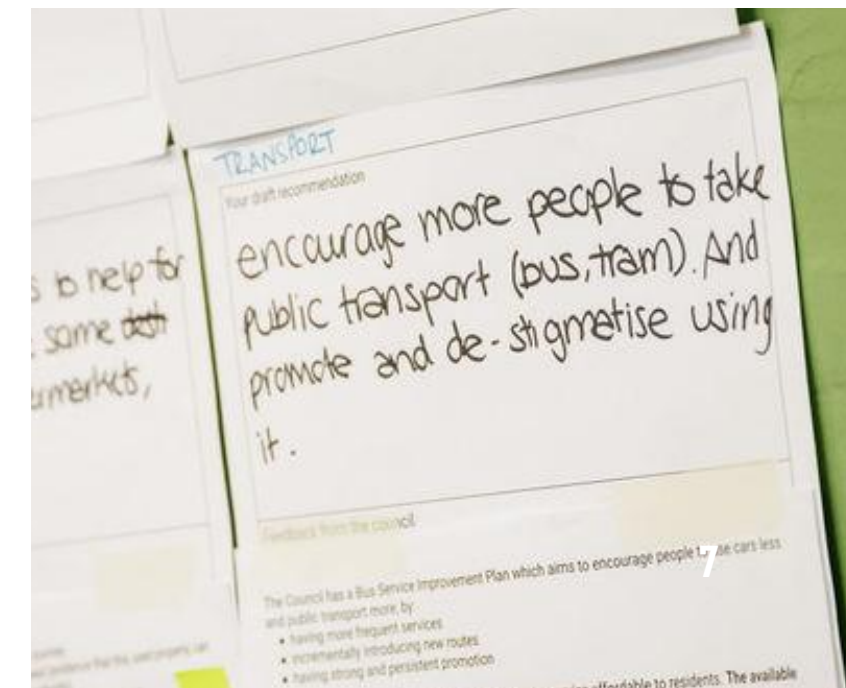 TRANSPORT
Your draft recommendation
encourage more people to take
public transport (bus, tram). And
promote and de-stigmatise using
it.
s to help for
same
ermarkets,
Feedback from the council
The Council has a Bus Service Improvement Plan which aims to encourage people to use cars less
and public transport more, by:
• having more frequent services
• incrementally introducing new routes
• having strong and persistent promotion
affordable to residents. The available
7